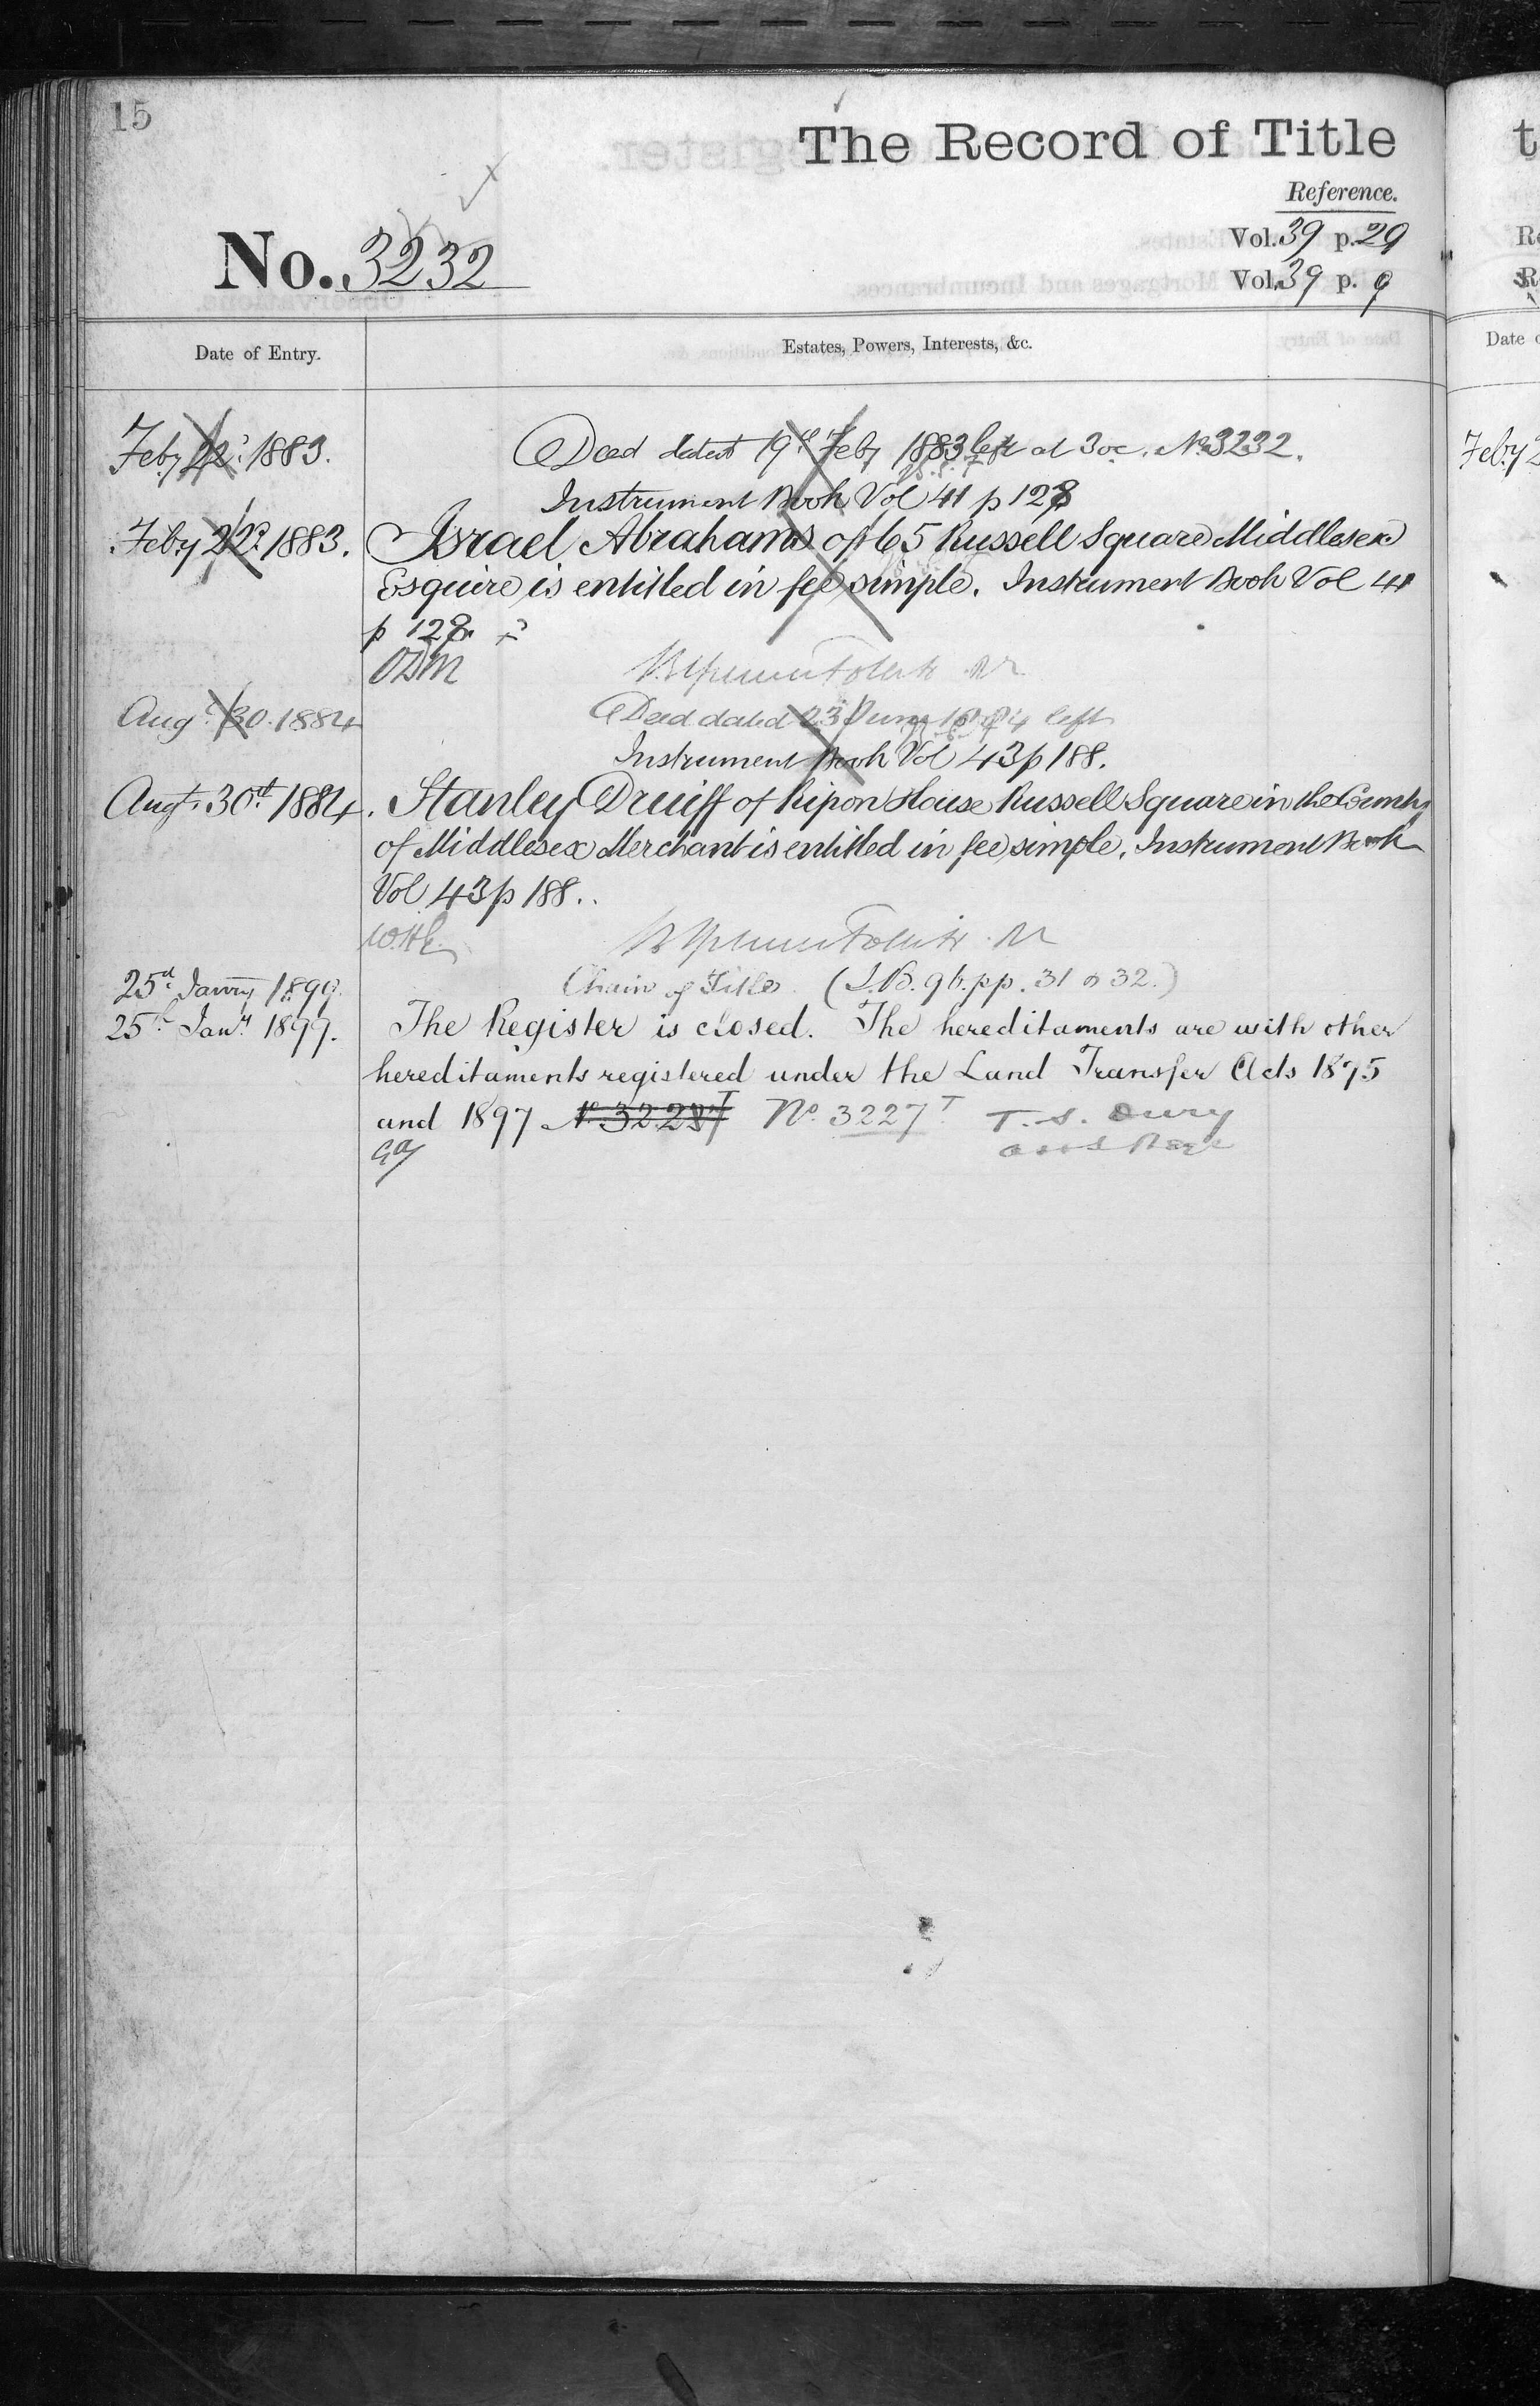 15
The Record of Title
Reference.
No. 3232
Vol. 39 p. 29
Vol. 39 p. 9
Date of Entry.
Estates, Powers, Interests, &c.
Feby 22d 1883.
Deed dated 19th Feby 1883 left at 3 oc. No 3232.
Instrument Book Vol 41 p 128
Feby 22d 1883.
Israel Abrahams of 65 Russell Square Middlesex
Esquire is entitled in fee simple. Instrument Book Vol 41
p 128
Augt 30. 1884
Deed dated 23d June 1884 left
Instrument Book Vol 43 p 188.
Augt. 30th 1884.
Stanley Druiff of Ripon House Russell Square in the County
of Middlesex Merchant is entitled in fee simple. Instrument Book
Vol 43 p 188..
25th Janry 1899.
Chain of Title (I.B. 96. pp. 31 & 32.)
25th Jany 1899.
The Register is closed. The hereditaments are with other
hereditaments registered under the Land Transfer Acts 1875
and 1897 No. 3227 T
t
Date
Feby 2